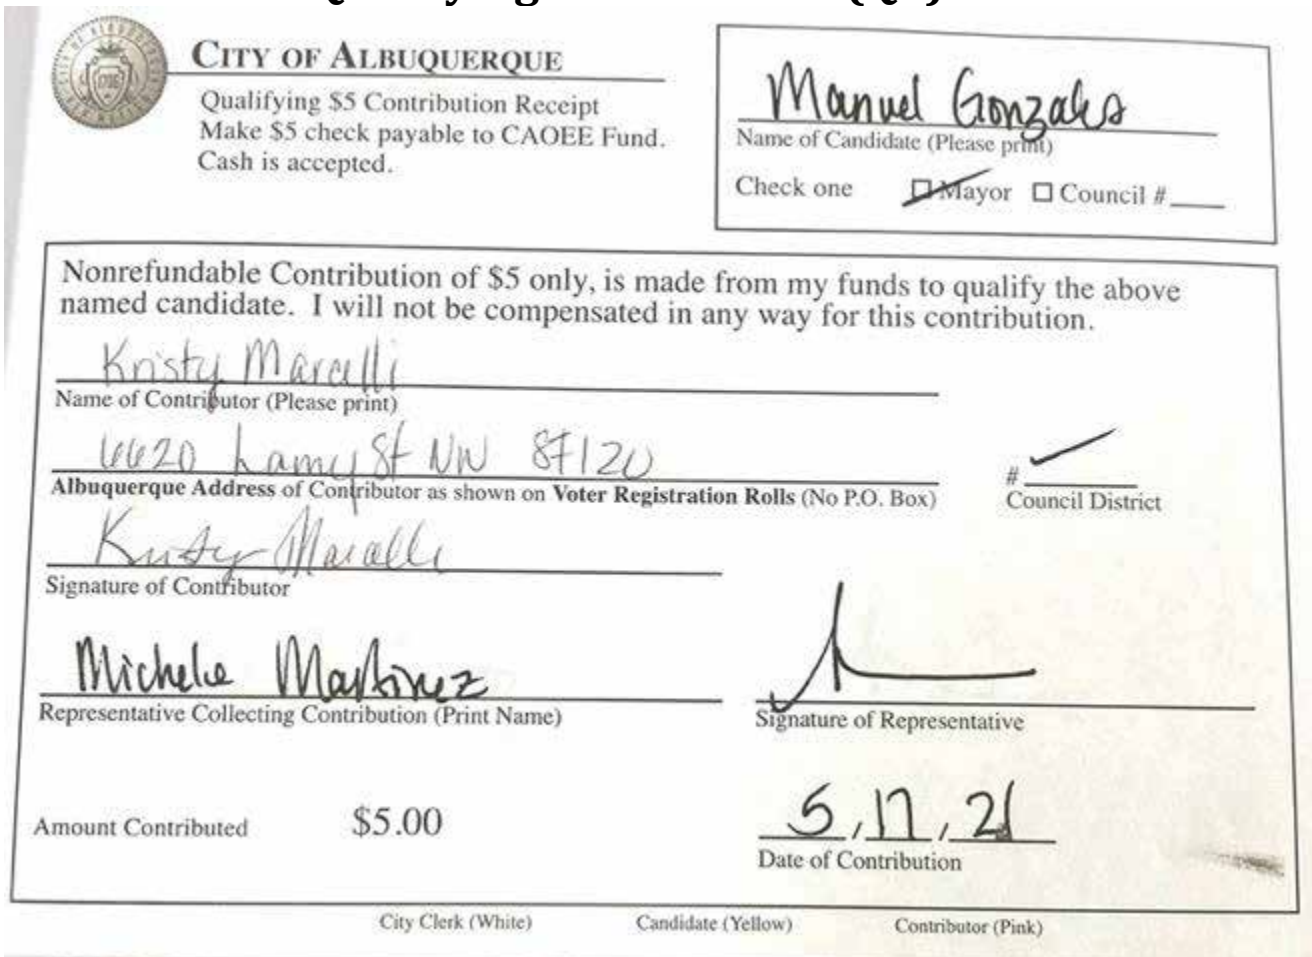 CITY OF ALBUQUERQUE
Qualifying $5 Contribution Receipt
Make $5 check payable to CAOEE Fund.
Cash is accepted.
Manuel Gonzales
Name of Candidate (Please print)
Check one □ Mayor □ Council #
Nonrefundable Contribution of $5 only, is made from my funds to qualify the above
named candidate. I will not be compensated in any way for this contribution.
Kristy Marcelli
Name of Contributor (Please print)
6620 Lamy St NW 87120
Albuquerque Address of Contributor as shown on Voter Registration Rolls (No P.O. Box)
#
Council District
Kristy Marcelli
Signature of Contributor
Michele Martinez
Representative Collecting Contribution (Print Name)
Signature of Representative
Amount Contributed $5.00
5, 17, 21
Date of Contribution
City Clerk (White) Candidate (Yellow) Contributor (Pink)